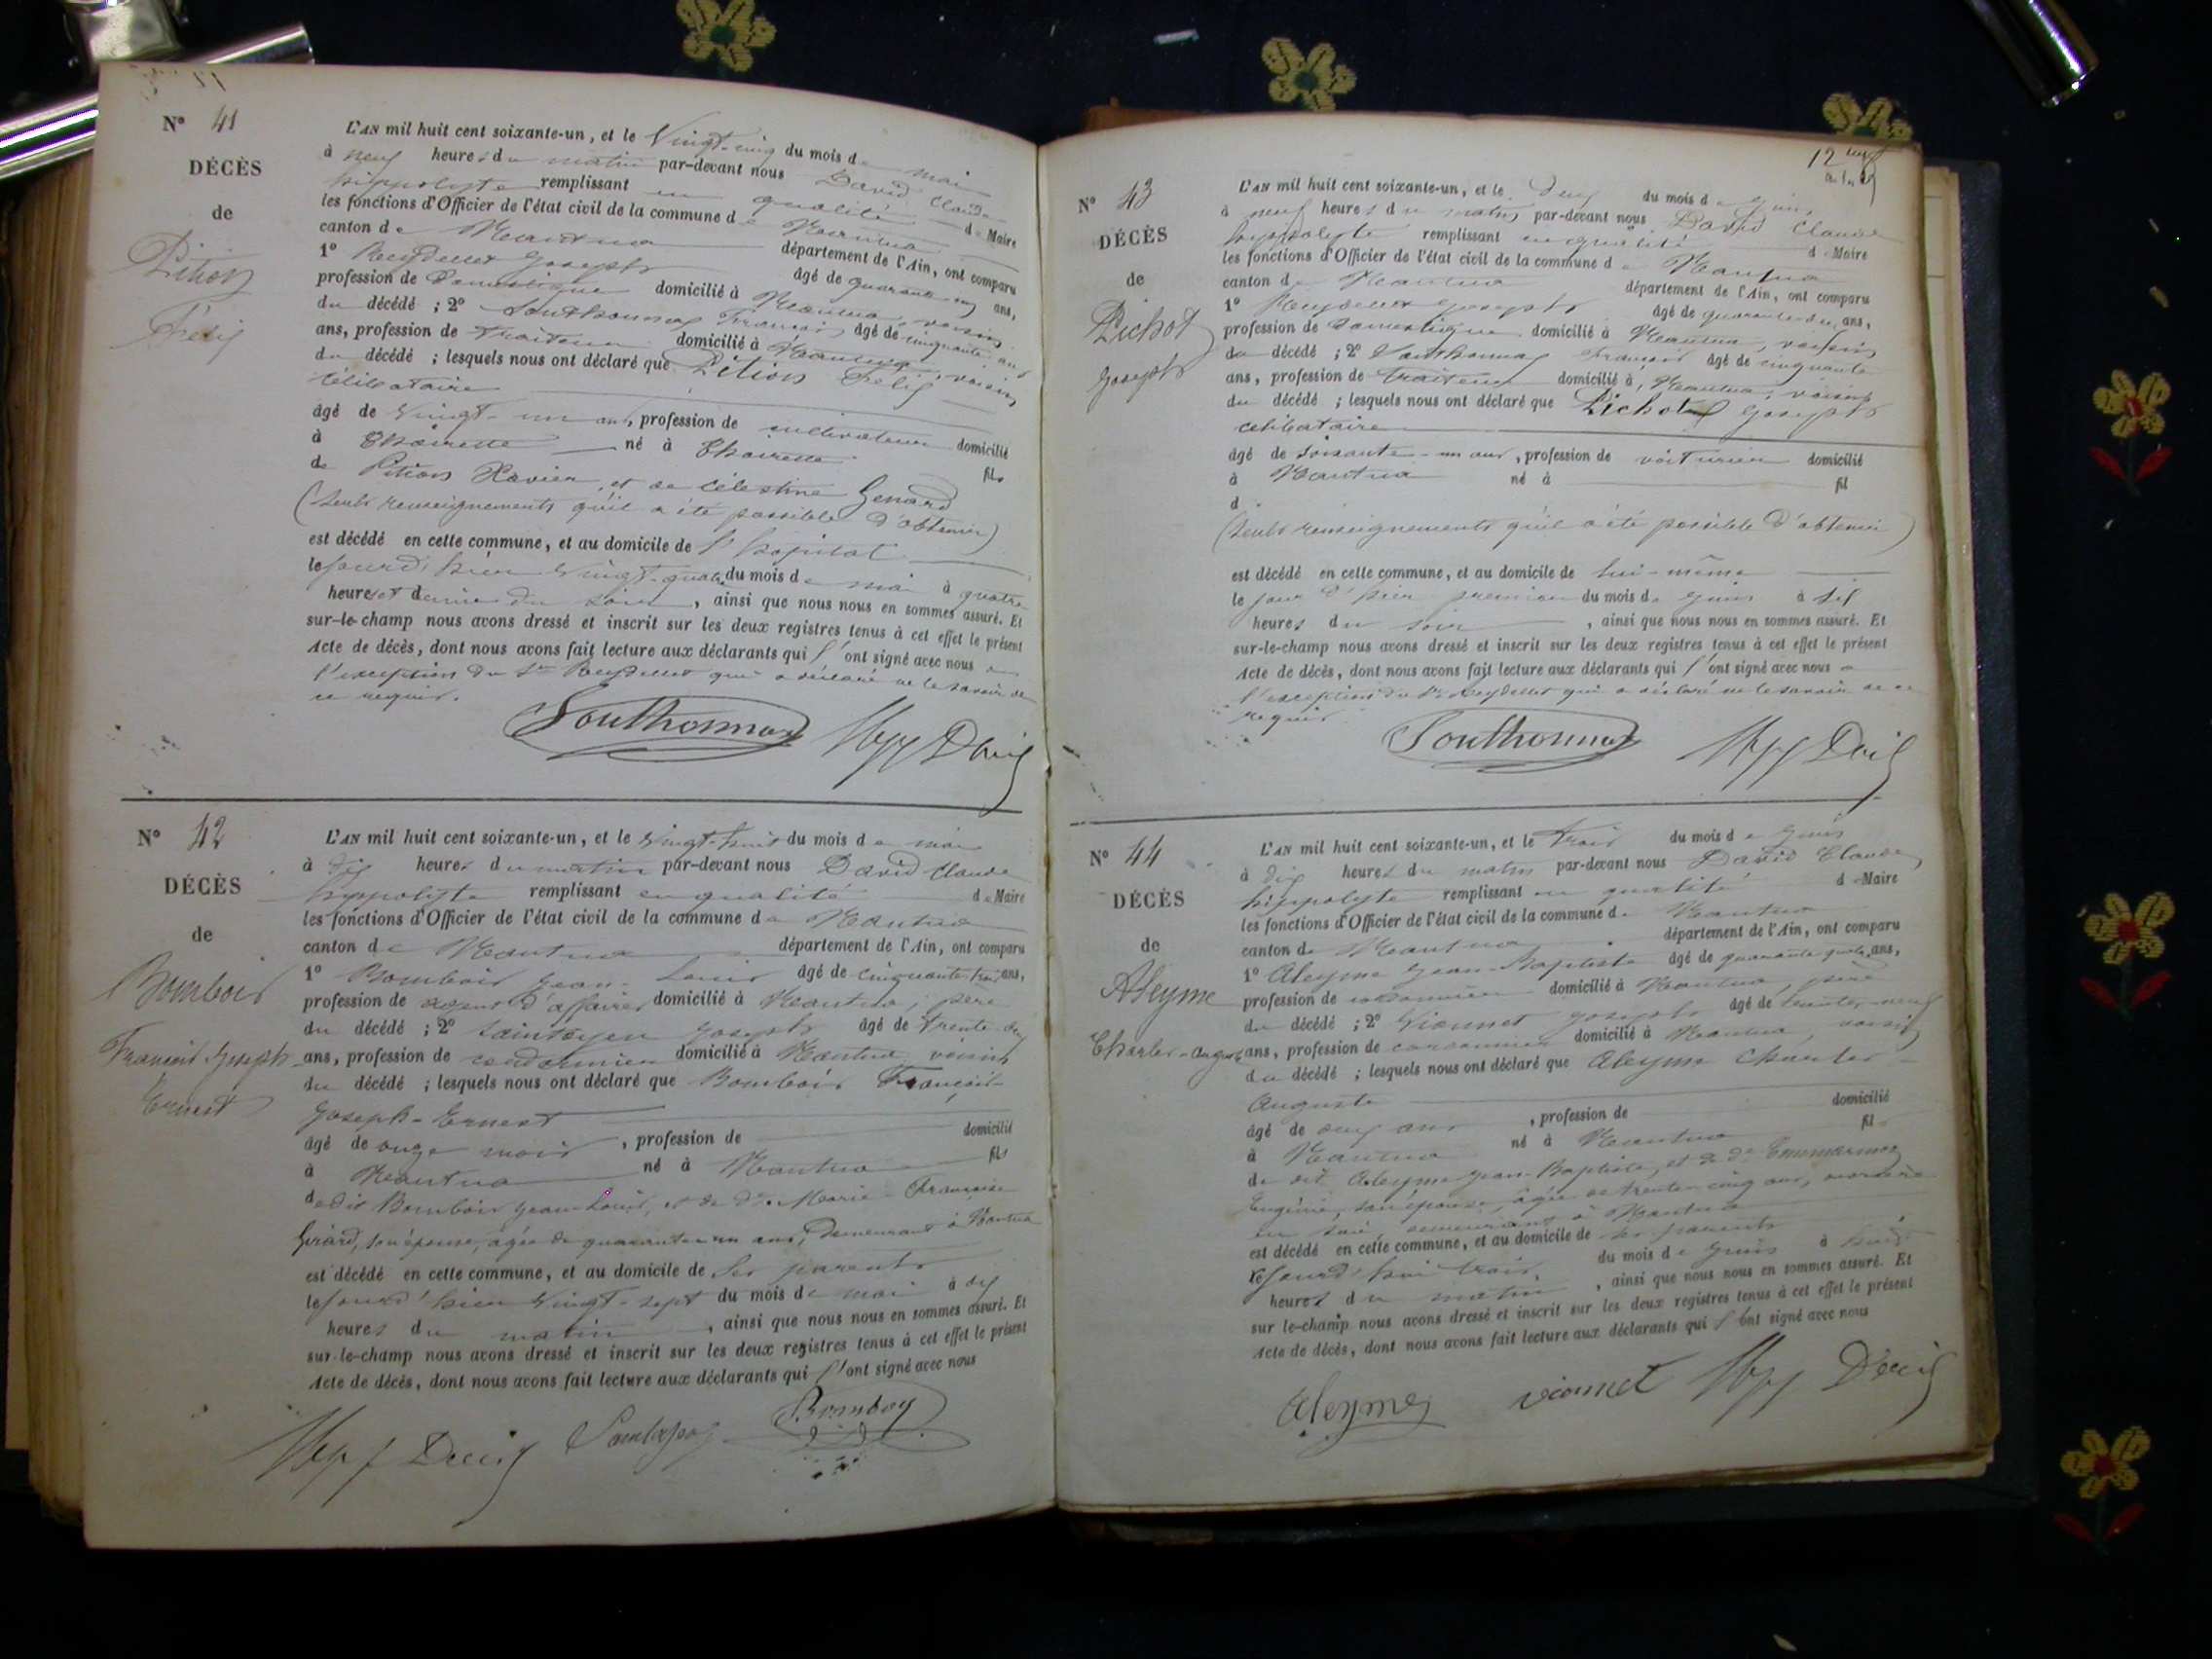 N° 41
DÉCÈS
de
Pition
Félix
L'AN mil huit cent soixante-un, et le Vingt-cinq du mois de mai
à neuf heures du matin par-devant nous David Claude
hippolyte remplissant en qualité de Maire
les fonctions d'Officier de l'état civil de la commune de Nantua
canton de Nantua département de l'Ain, ont comparu
1° Reydellet Joseph âgé de quarante ans,
profession de Domestique domicilié à Nantua, voisin
du décédé ; 2° Southonnax François âgé de cinquante
ans, profession de traiteur domicilié à Nantua, voisin
du décédé ; lesquels nous ont déclaré que Pition Félix
célibataire
âgé de vingt-un ans, profession de cultivateur domicilié
à Thoirette né à Thoirette fils
de Pition Xavier, et de Célestine Genard
(seuls renseignements qu'il a été possible d'obtenir)
est décédé en cette commune, et au domicile de l'hopital
le jour d'hier vingt-quatre du mois de mai à quatre
heures et demie du soir, ainsi que nous nous en sommes assuré. Et
sur-le-champ nous avons dressé et inscrit sur les deux registres tenus à cet effet le présent
Acte de décès, dont nous avons fait lecture aux déclarants qui l'ont signé avec nous à
l'exception du Sr Reydellet qui a déclaré ne le savoir de
ce requis.
Southonnax Hyp David
N° 42
DÉCÈS
de
Bomboir
François Joseph
Ernest
L'AN mil huit cent soixante-un, et le vingt-huit du mois de mai
à dix heures du matin par-devant nous David Claude
hyppolyte remplissant en qualité de Maire
les fonctions d'Officier de l'état civil de la commune de Nantua
canton de Nantua département de l'Ain, ont comparu
1° Bomboir Jean-Louis âgé de cinquante ans,
profession de agent d'affaires domicilié à Nantua, père
du décédé ; 2° Saintoyen Joseph âgé de trente
ans, profession de cordonnier domicilié à Nantua voisin
du décédé ; lesquels nous ont déclaré que Bomboir François-
Joseph-Ernest
âgé de onze mois, profession de domicilié
à Nantua né à Nantua fils
de dit Bomboir Jean Louis, et de De Marie-Françoise
Girard, son épouse, âgée de quarante-un ans, Demeurant à Nantua
est décédé en cette commune, et au domicile de ses parents
le jour d'hier vingt-sept du mois de mai à dix
heures du matin, ainsi que nous nous en sommes assuré. Et
sur-le-champ nous avons dressé et inscrit sur les deux registres tenus à cet effet le présent
Acte de décès, dont nous avons fait lecture aux déclarants qui l'ont signé avec nous
Hyp David Bomboy
12
N° 43
DÉCÈS
de
Pichot
Joseph
L'AN mil huit cent soixante-un, et le deux du mois de juin
à neuf heures du matin par-devant nous David Claude
hyppolyte remplissant en qualité de Maire
les fonctions d'Officier de l'état civil de la commune de Nantua
canton de Nantua département de l'Ain, ont comparu
1° Reydellet Joseph âgé de quarante ans,
profession de domestique domicilié à Nantua, voisin
du décédé ; 2° Southonnax François âgé de cinquante
ans, profession de traiteur domicilié à Nantua, voisin
du décédé ; lesquels nous ont déclaré que Pichot Joseph
célibataire
âgé de soixante-un ans, profession de voiturier domicilié
à Nantua né à fil
d
(seuls renseignements qu'il a été possible d'obtenir)
est décédé en cette commune, et au domicile de lui-même
le jour d'hier premier du mois de juin à six
heures du soir, ainsi que nous nous en sommes assuré. Et
sur-le-champ nous avons dressé et inscrit sur les deux registres tenus à cet effet le présent
Acte de décès, dont nous avons fait lecture aux déclarants qui l'ont signé avec nous à
l'exception du Sr Reydellet qui a déclaré ne le savoir de ce
requis.
Southonnax Hyp David
N° 44
DÉCÈS
de
Aleyme
Charles-Auguste
L'AN mil huit cent soixante-un, et le trois du mois de juin
à dix heures du matin par-devant nous David Claude
hippolyte remplissant en qualité de Maire
les fonctions d'Officier de l'état civil de la commune de Nantua
canton de Nantua département de l'Ain, ont comparu
1° Aleyme Jean-Baptiste âgé de quarante quatre ans,
profession de cordonnier domicilié à Nantua, père
du décédé ; 2° Vionnet Joseph âgé de trente-neuf
ans, profession de cordonnier domicilié à Nantua, voisin
du décédé ; lesquels nous ont déclaré que Aleyme Charles-
Auguste
âgé de deux ans, profession de domicilié
à Nantua né à Nantua fils
de dit Aleyme Jean-Baptiste, et de De
Eugénie, son épouse, âgée de trente-cinq ans,
en soie, demeurant à Nantua
est décédé en cette commune, et au domicile de ses parents
le jourd'hui trois du mois de juin à huit
heures du matin, ainsi que nous nous en sommes assuré. Et
sur le-champ nous avons dressé et inscrit sur les deux registres tenus à cet effet le présent
Acte de décès, dont nous avons fait lecture aux déclarants qui l'ont signé avec nous
Aleyme vionnet Hyp David